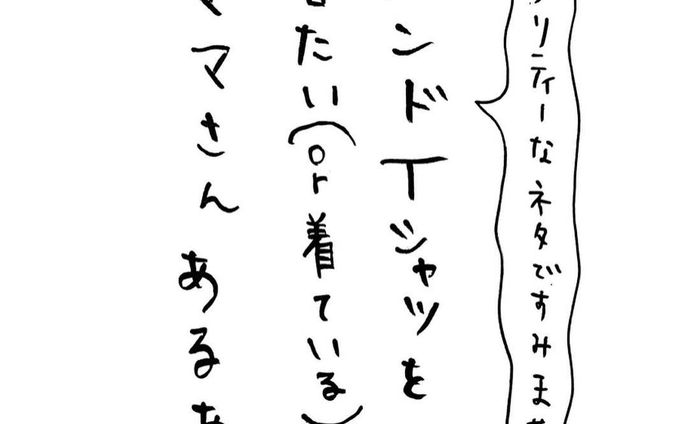 リティーなネタですみま
ンドTシャツを
たい(or着ている)
マさん あるあ